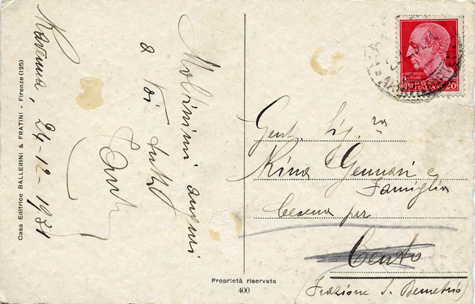 Casa Editrice BALLERINI & FRATINI - Firenze (195)
Ravenna, 24-12-1931
Moltissimi auguri
a Voi tutti
Gent. Sig.ra
Rina Gennari e
Famiglia
Cesena per
Cento
Frazione S. Demetrio
Proprietà riservata
400
20